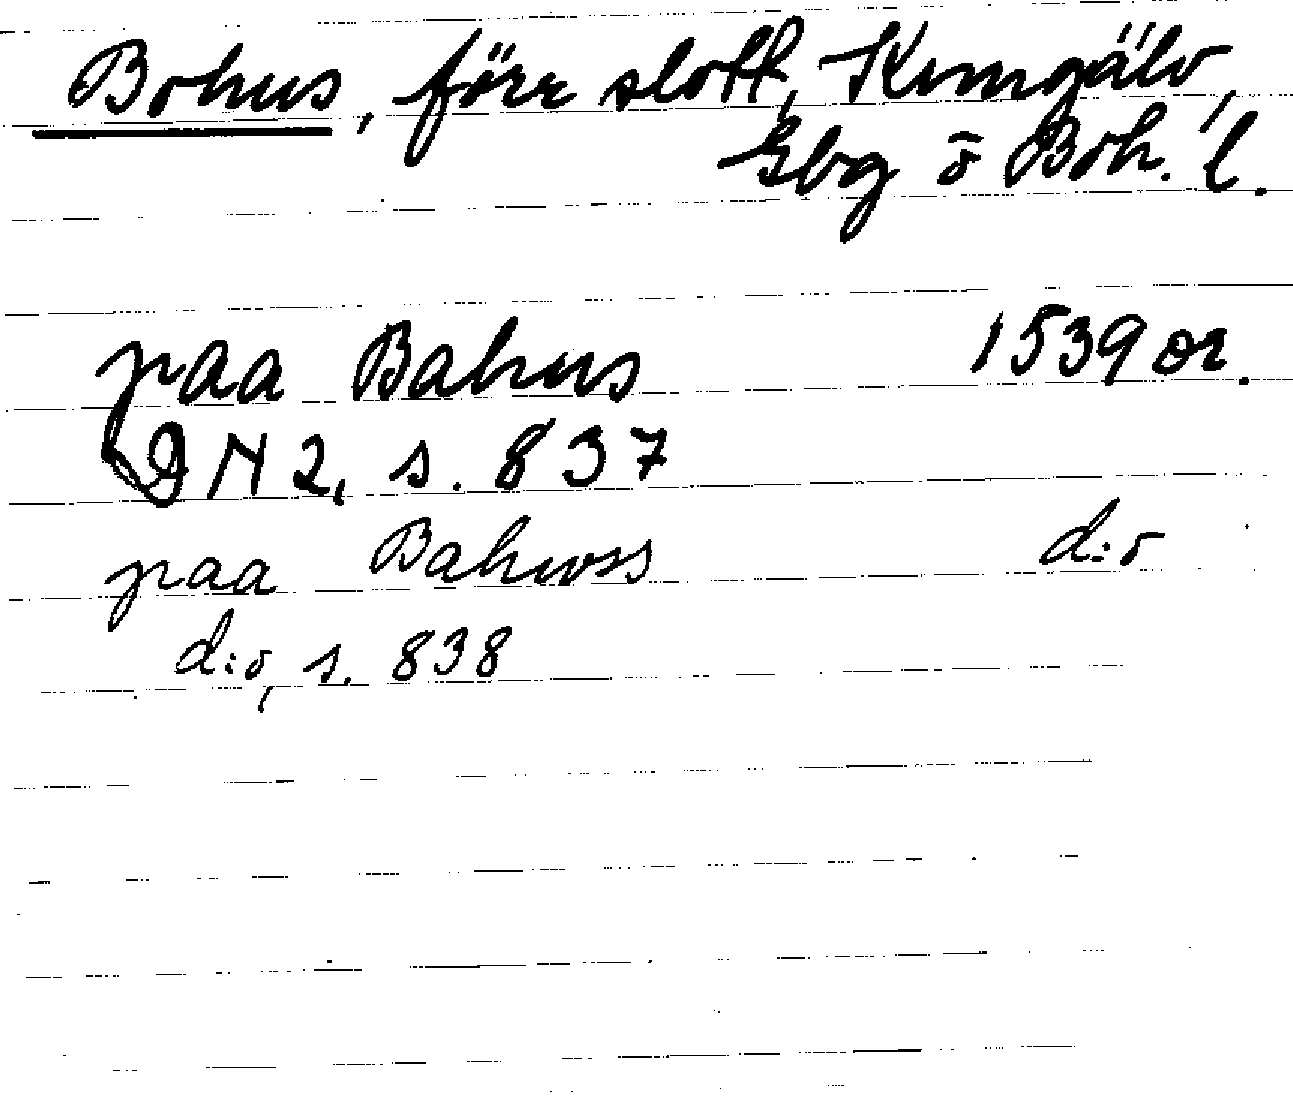 Bohus, förr slott, Kungälv,
Gbg o Boh. l.
paa Bahus 1539 or.
DN 2, s. 837
paa Bahwss d:o
d:o, s. 838